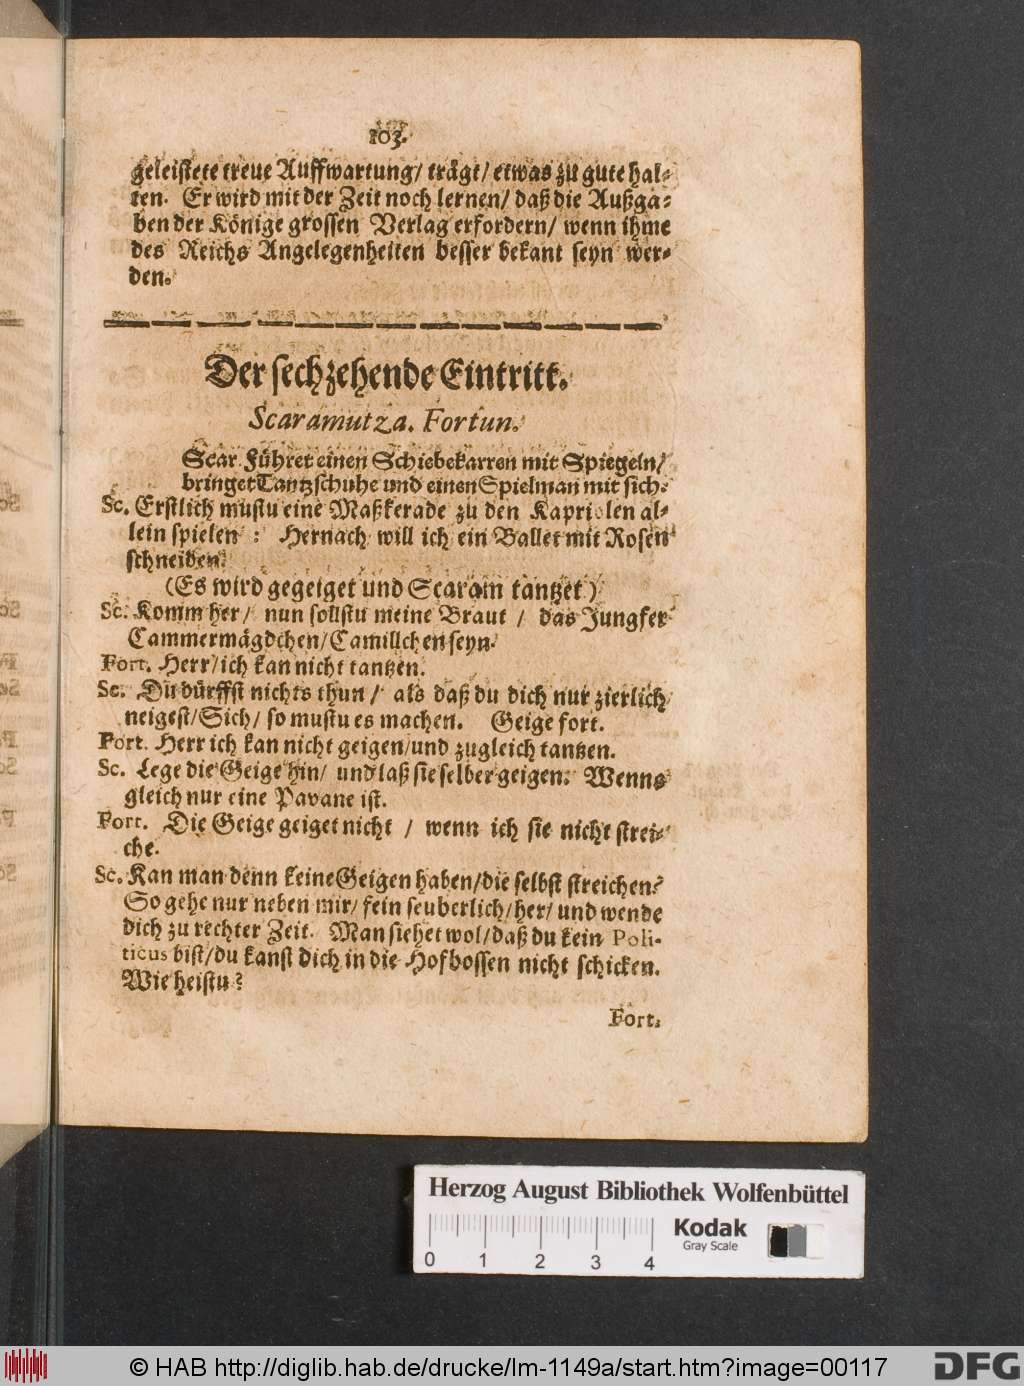 103.
geleistete treue Auffwartung/ trägt/ etwas zu gute hal-
ten. Er wird mit der Zeit noch lernen/ daß die Außga-
ben der Könige grossen Verlag erfordern/ wenn ihme
des Reichs Angelegenheiten besser bekant seyn wer-
den.
Der sechzehende Eintritt.
Scaramutza. Fortun.
Scar. Führet einen Schiebekarren mit Spiegeln/
bringet Tantzschuhe und einen Spielman mit sich.
Sc. Erstlich mustu eine Maßkerade zu den Kapriolen al-
lein spielen : Hernach will ich ein Ballet mit Rosen
schneiden.
(Es wird gegeiget und Scaram tantzet)
Sc. Komm her/ nun sollstu meine Braut / das Jungfer
Cammermägdchen/ Camillchen seyn.
Fort. Herr/ ich kan nicht tantzen.
Sc. Du dürffst nichts thun/ als daß du dich nur zierlich
neigest/ Sich/ so mustu es machen. Geige fort.
Fort. Herr ich kan nicht geigen/ und zugleich tantzen.
Sc. Lege die Geige hin/ und laß sie selber geigen. Wenns
gleich nur eine Pavane ist.
Fort. Die Geige geiget nicht / wenn ich sie nicht strei-
che.
Sc. Kan man denn keine Geigen haben/ die selbst streichen?
So gehe nur neben mir/ fein seuberlich/ her/ und wende
dich zu rechter Zeit. Man siehet wol/ daß du kein Poli-
ticus bist/ du kanst dich in die Hofbossen nicht schicken.
Wie heistu?
Fort.
Herzog August Bibliothek Wolfenbüttel
Kodak
Gray Scale
0 1 2 3 4
© HAB http://diglib.hab.de/drucke/lm-1149a/start.htm?image=00117
DFG